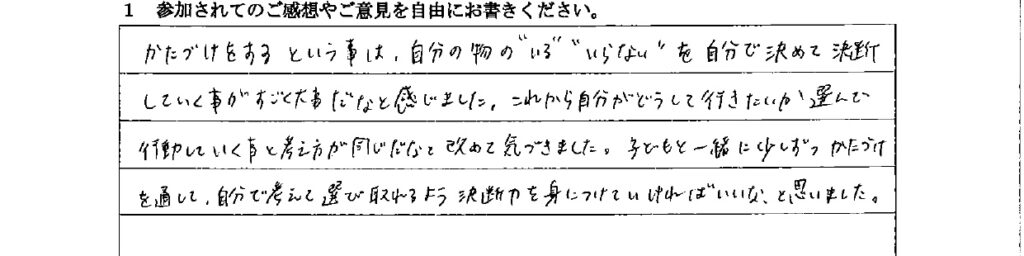 1 参加されてのご感想やご意見を自由にお書きください。
かたづけをする という事は、自分の物の"いる""いらない"を自分で決めて決断
していく事がすごく大事だなと感じました。これから自分がどうして行きたいか選んで
行動していく事と考え方が同じだなと改めて気づきました。子どもと一緒に少しずつかたづけ
を通して、自分で考えて選び取れるよう決断力を身につけていければいいな、と思いました。